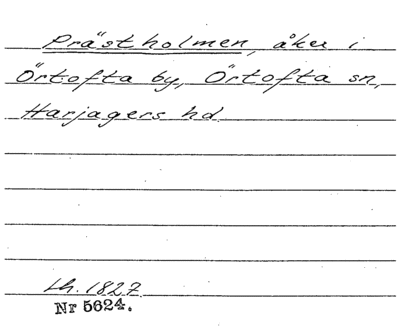 Prästholmen, åker i
Örtofta by, Örtofta sn,
Harjagers hd
Lh. 1827
Nr 5624.